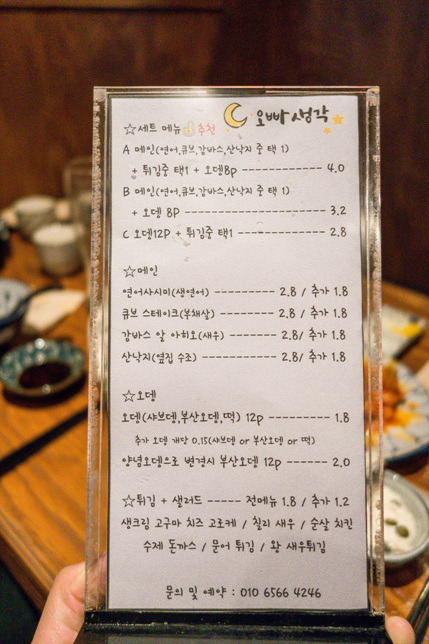 오빠생각
☆세트 메뉴👍추천
A 메인(연어,큐브,감바스,산낙지 중 택 1)
+ 튀김중 택1 + 오뎅8p ------------- 4.0
B 메인(연어,큐브,감바스,산낙지 중 택 1)
+ 오뎅 8P ---------------------- 3.2
C 오뎅12P + 튀김중 택1 -------------- 2.8
☆메인
연어사시미(생연어) ---------- 2.8 / 추가 1.8
큐브 스테이크(부채살) -------- 2.8 / 추가 1.8
감바스 알 아히요(새우) -------- 2.8/ 추가 1.8
산낙지(옆집 수조) ---------- 2.8/ 추가 1.8
☆오뎅
오뎅(샤브뎅,부산오뎅,떡) 12p ---------- 1.8
추가 오뎅 개당 0.15(샤브뎅 or 부산오뎅 or 떡)
양념오뎅으로 변경시 부산오뎅 12p ------ 2.0
☆튀김 + 샐러드 ------ 전메뉴 1.8 / 추가 1.2
생크림 고구마 치즈 고로케 / 칠리 새우 / 순살 치킨
수제 돈까스 / 문어 튀김 / 왕 새우튀김
문의 및 예약 : 010 6566 4246